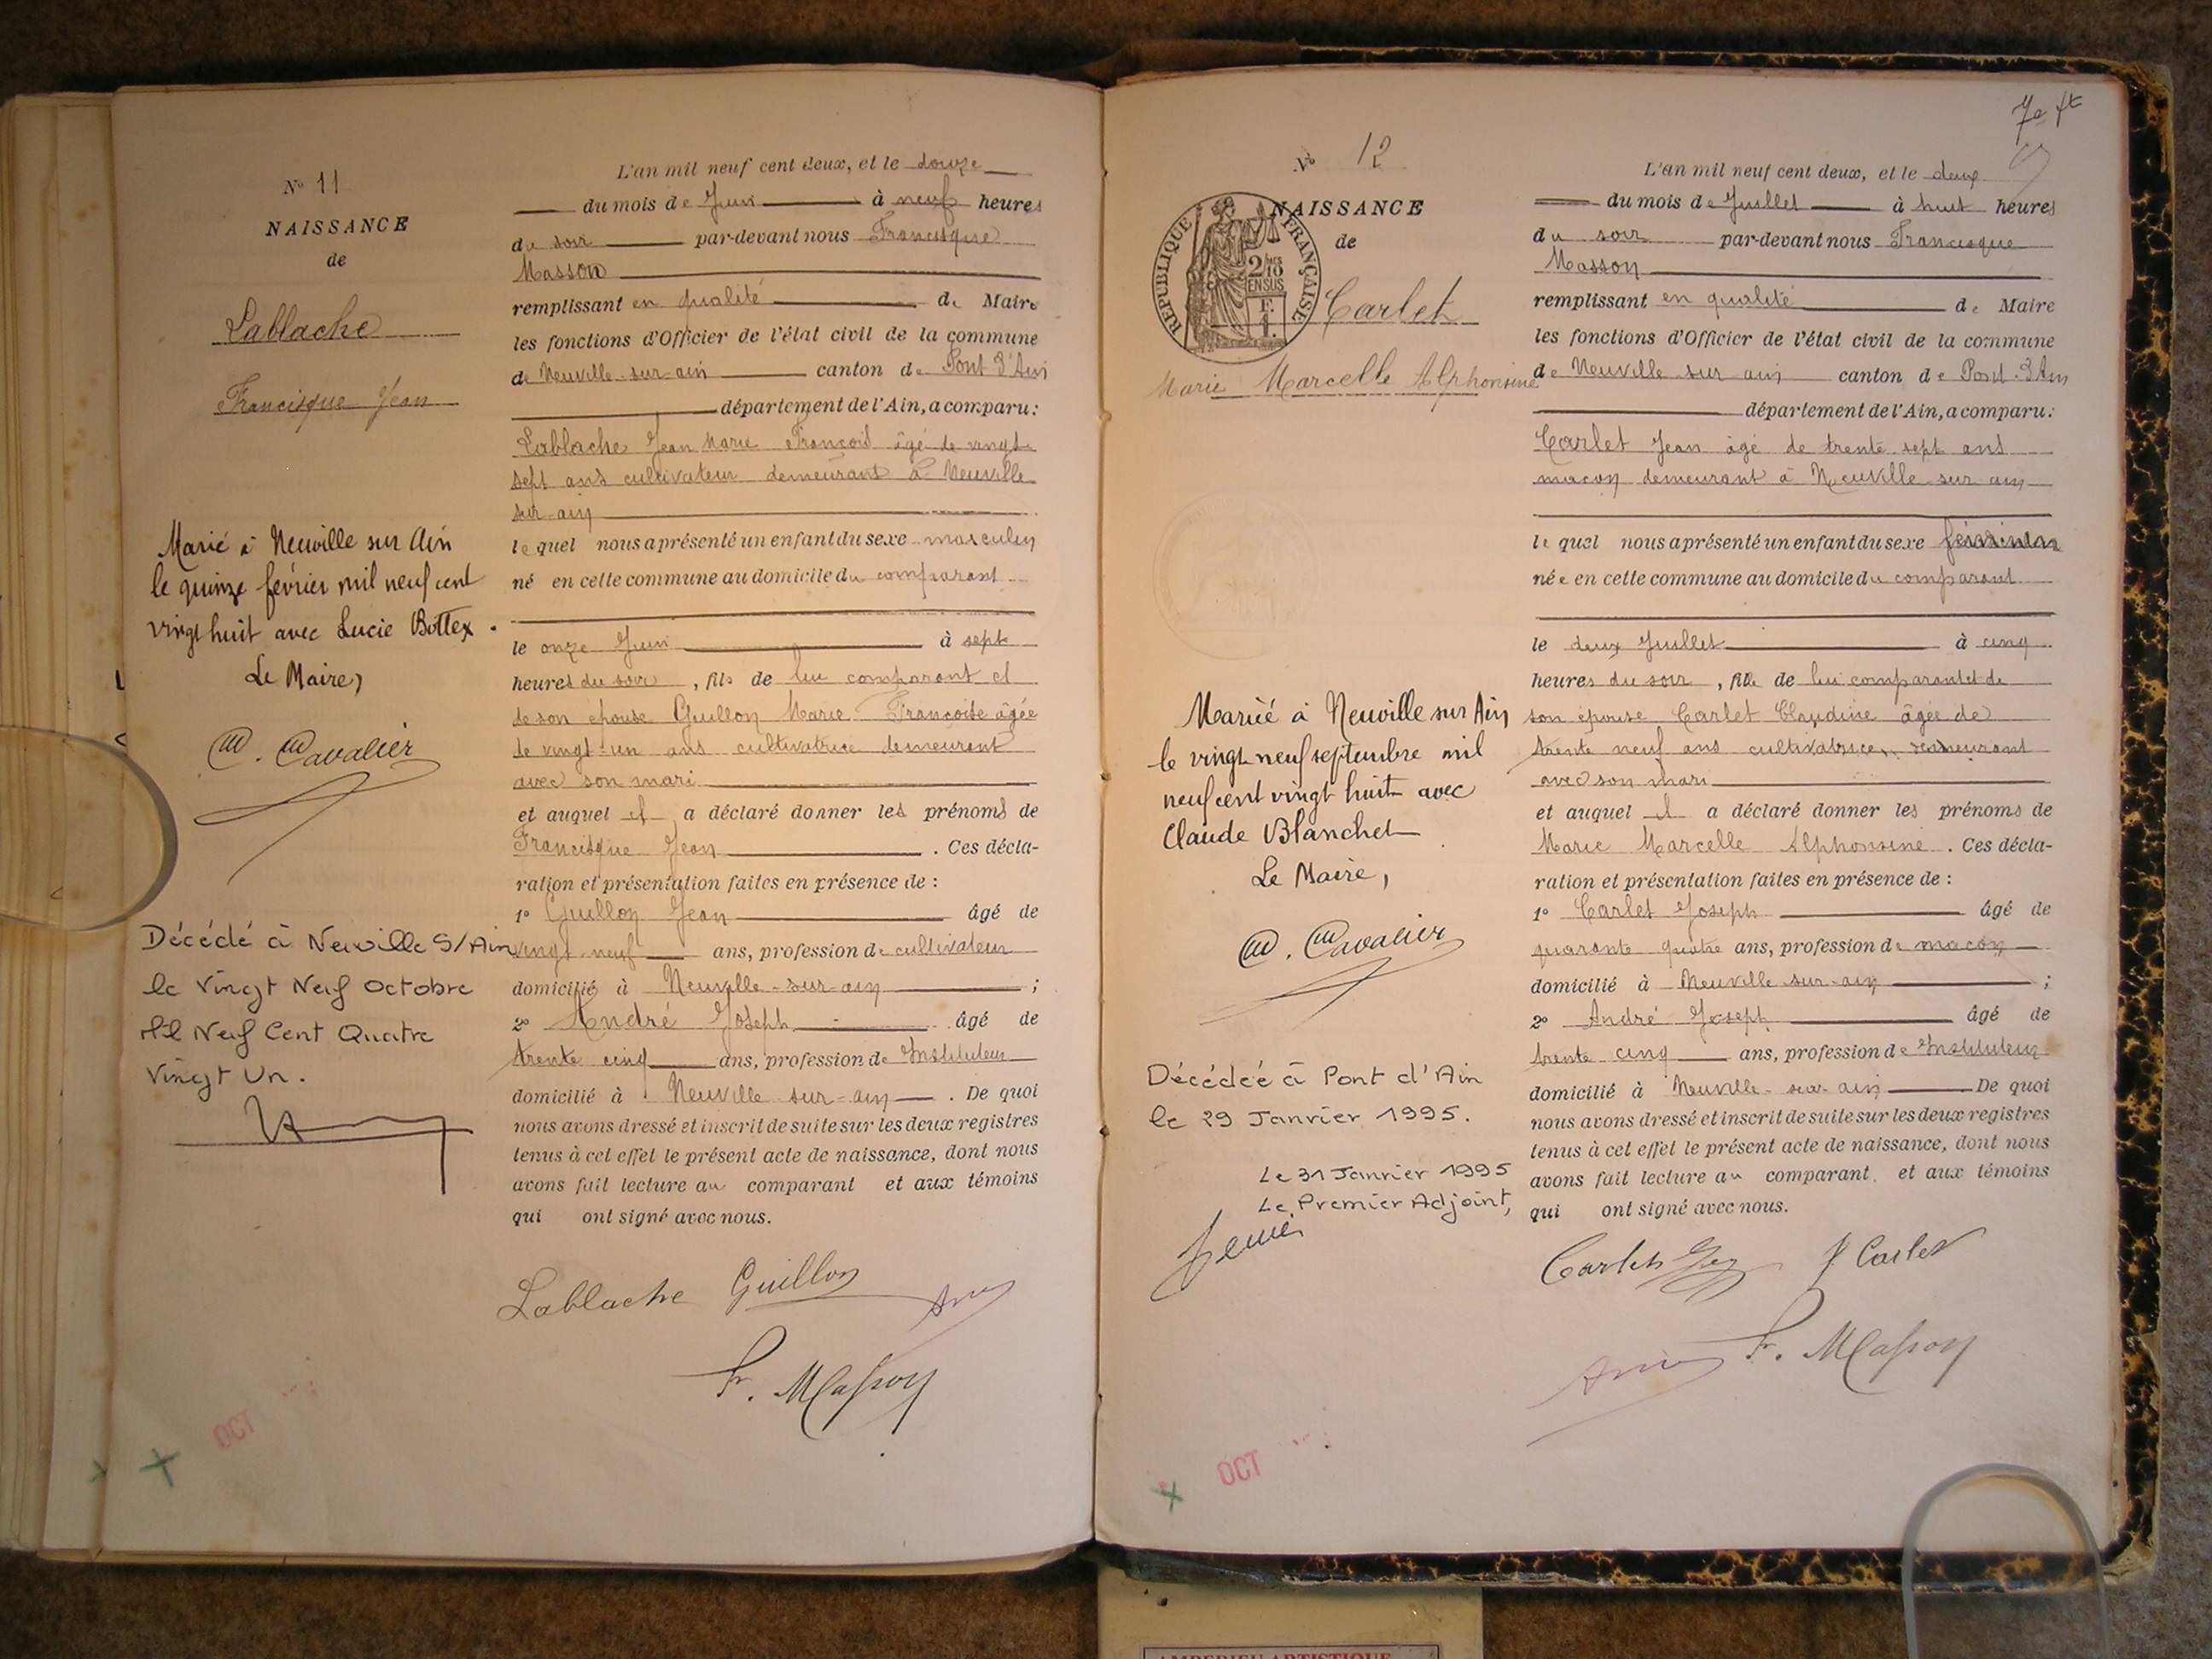 N° 11
NAISSANCE
de
Lablache
Francisque Jean
Marié à Neuville sur Ain
le quinze février mil neuf cent
vingt huit avec Lucie Bottex.
Le Maire,
Cavalier
Décédé à Neuville S/Ain
le Vingt Neuf Octobre
Mil Neuf Cent Quatre
Vingt Un.
L'an mil neuf cent deux, et le douze
du mois de Juin à neuf heures
du soir par-devant nous Francisque
Masson
remplissant en qualité de Maire
les fonctions d'Officier de l'état civil de la commune
de Neuville-sur-ain canton de Pont d'Ain
département de l'Ain, a comparu:
Lablache Jean Marie François âgé de vingt
sept ans cultivateur demeurant à Neuville
sur-ain
lequel nous a présenté un enfant du sexe masculin
né en cette commune au domicile du comparant
le onze Juin à sept
heures du soir, fils de lui comparant et
de son épouse Guillon Marie Françoise âgée
de vingt-un ans cultivatrice demeurant
avec son mari
et auquel il a déclaré donner les prénoms de
Francisque Jean. Ces décla-
ration et présentation faites en présence de :
1° Guillon Jean âgé de
vingt-neuf ans, profession de cultivateur
domicilié à Neuville-sur-ain ;
2° André Joseph âgé de
trente cinq ans, profession de Instituteur
domicilié à Neuville sur-ain. De quoi
nous avons dressé et inscrit de suite sur les deux registres
tenus à cet effet le présent acte de naissance, dont nous
avons fait lecture au comparant et aux témoins
qui ont signé avec nous.
Lablache Guillon
Fr. Masson
OCT
7e ft
N° 12
NAISSANCE
de
REPUBLIQUE FRANÇAISE
2/10 EN SUS
Carlet
Marie Marcelle Alphonsine
Mariée à Neuville sur Ain
le vingt neuf septembre mil
neuf cent vingt huit avec
Claude Blanchet
Le Maire,
Cavalier
Décédée à Pont d'Ain
le 29 Janvier 1995.
Le 31 Janvier 1995
Le Premier Adjoint,
L'an mil neuf cent deux, et le deux
du mois de Juillet à huit heures
du soir par-devant nous Francisque
Masson
remplissant en qualité de Maire
les fonctions d'Officier de l'état civil de la commune
de Neuville sur ain canton de Pont-d'Ain
département de l'Ain, a comparu:
Carlet Jean âgé de trente sept ans
maçon demeurant à Neuville sur ain
lequel nous a présenté un enfant du sexe féminin
née en cette commune au domicile du comparant
le deux Juillet à cinq
heures du soir, fille de lui comparant et de
son épouse Carlet Claudine âgée de
trente neuf ans cultivatrice demeurant
avec son mari
et auquel il a déclaré donner les prénoms de
Marie Marcelle Alphonsine. Ces décla-
ration et présentation faites en présence de :
1° Carlet Joseph âgé de
quarante quatre ans, profession de maçon
domicilié à Neuville-sur-ain ;
2° André Joseph âgé de
trente cinq ans, profession de Instituteur
domicilié à Neuville-sur-ain De quoi
nous avons dressé et inscrit de suite sur les deux registres
tenus à cet effet le présent acte de naissance, dont nous
avons fait lecture au comparant et aux témoins
qui ont signé avec nous.
Carlet J Carlet
Fr. Masson
OCT
AMBERIEU ARTISTIQUE